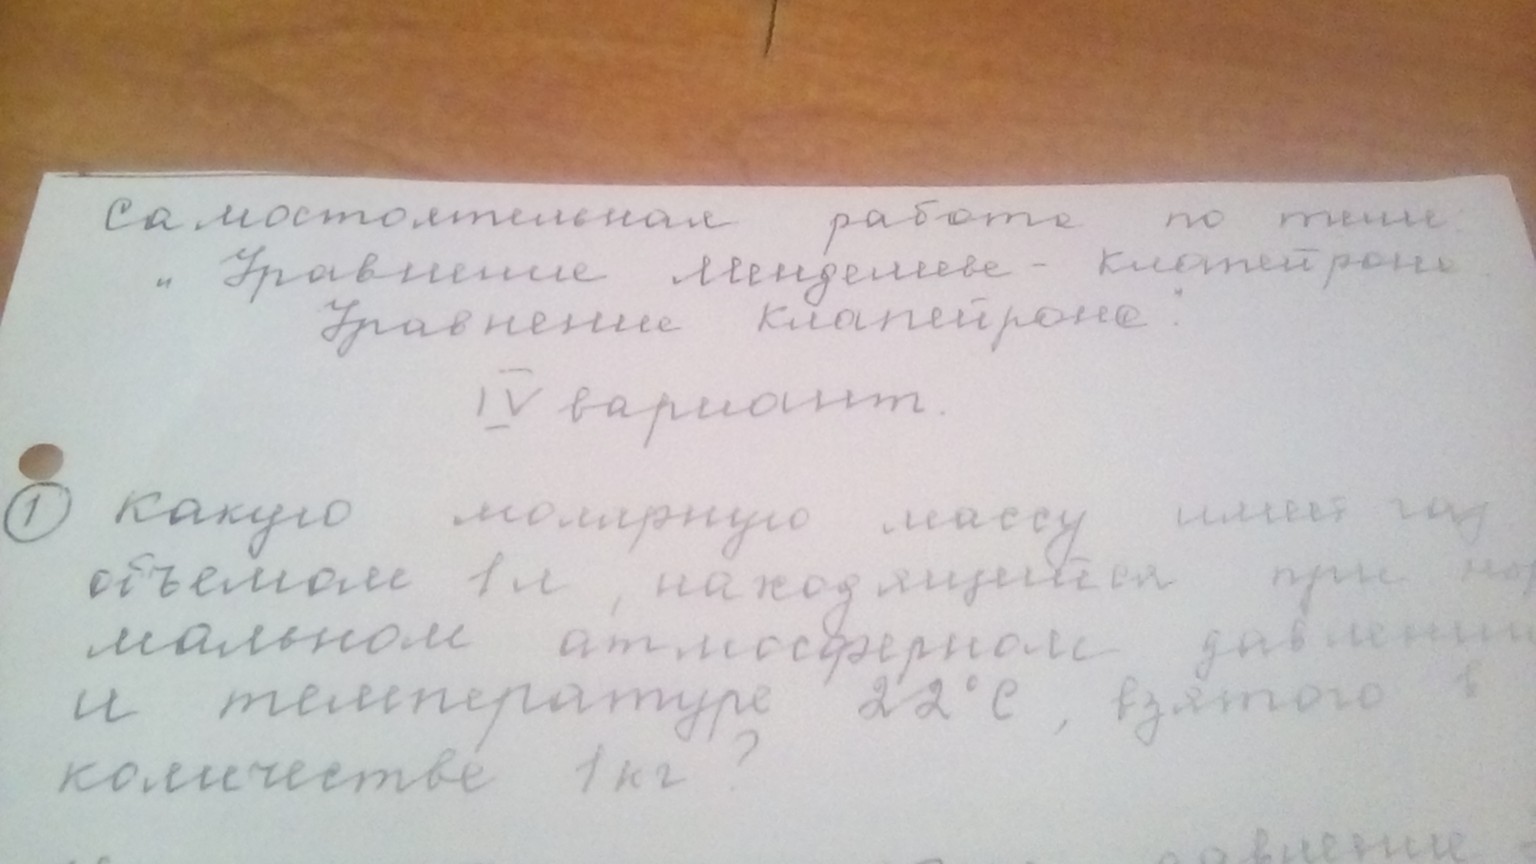 Самостоятельная работа по теме:
„ Уравнение Менделеева - Клапейрона.
Уравнение Клапейрона".
IV вариант.
1 Какую молярную массу имеет газ
объемом 1л, находящийся при нор
мальном атмосферном давлении
и температуре 22°С, взятого в
количестве 1кг?
давлении